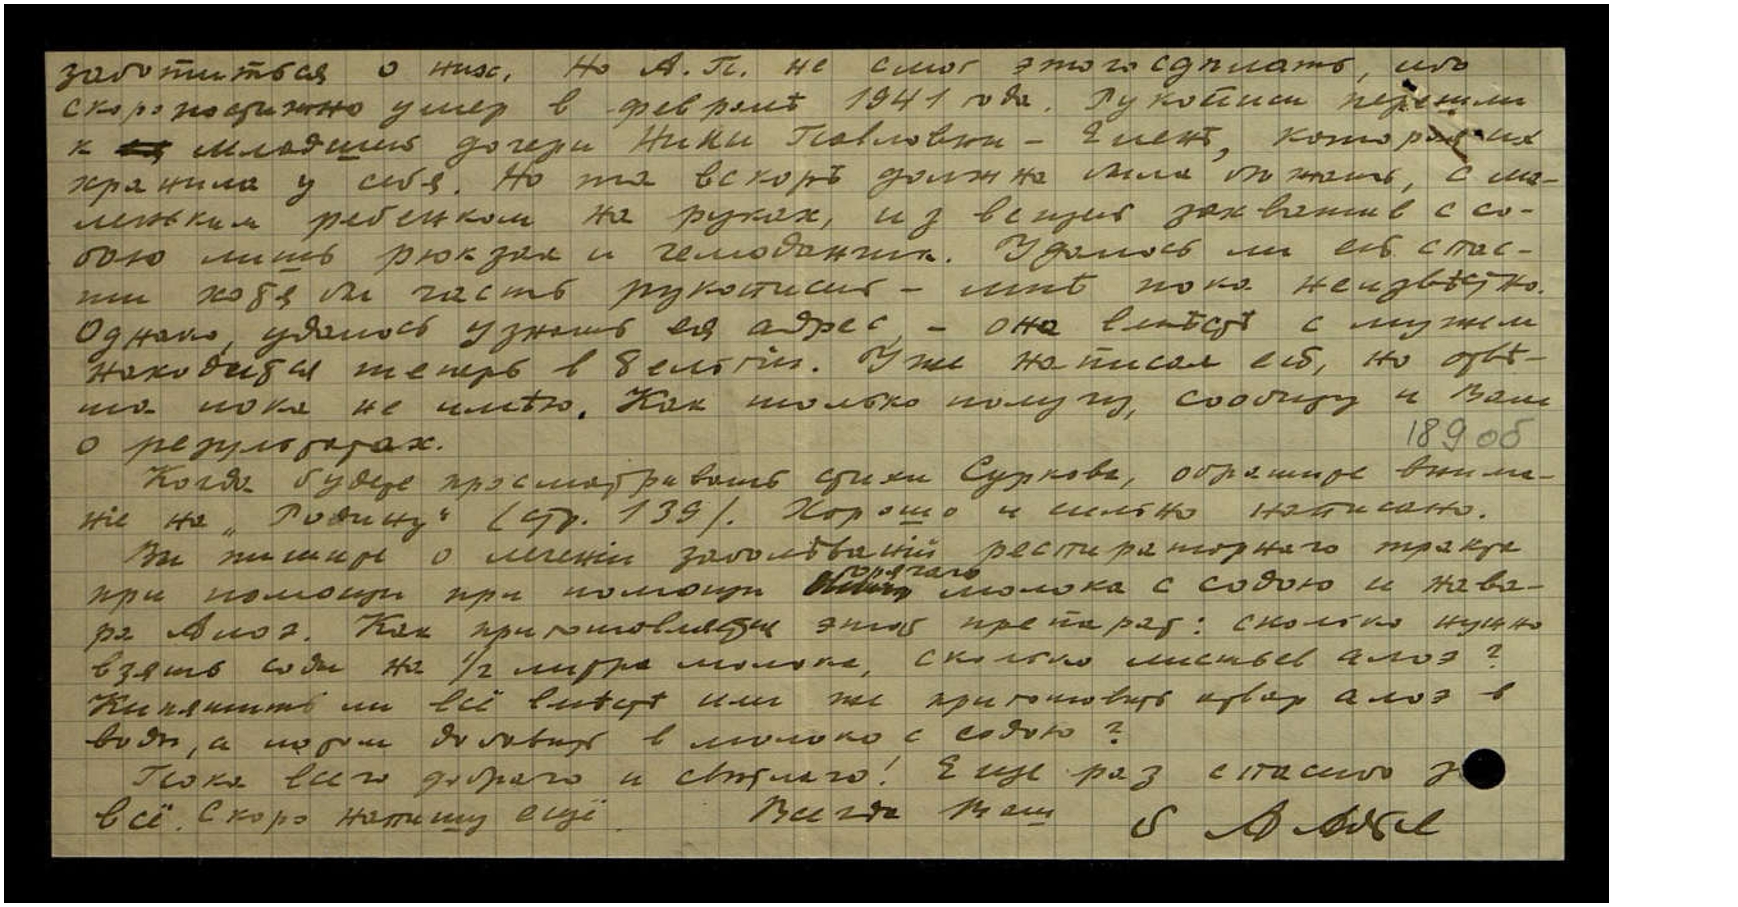 заботиться о них. Но А. П. не смог этого сдѣлать, ибо
скоропостижно умер в февралѣ 1941 года. Рукописи перешли
к младшей дочери Нины Павловны – Еленѣ, которая их
хранила у себя. Но та вскорѣ должна была бѣжать, с ма-
леньким ребенком на руках, из вещей захватив с со-
бою лишь рюкзак и чемоданчик. Удалось ли ей спас-
ти хотя бы часть рукописей – мнѣ пока неизвѣстно.
Однако, удалось узнать ея адрес, – она вмѣстѣ с мужем
находится теперь в Бельгіи. Уже написал ей, но отвѣ-
та пока не имѣю. Как только получу, сообщу и Вам
о результатах.
189 об
Когда будете просматривать стихи Суркова, обратите внима-
ніе на „Родину“ (стр. 139). Хорошо и сильно написано.
Вы пишите о леченіи заболѣваній респираторнаго тракта
при помощи при помощи горячаго молока с содою и нава-
ра Алоэ. Как приготовляете этот препарат: сколько нужно
взять соды на 1/2 литра молока, сколько листьев алоэ?
Кипятить ли всё вмѣстѣ или же приготовить отвар алоэ в
воды, а потом добавить в молоко с содою?
Пока всего добраго и свѣтлаго! Еще раз спасибо за
всё. Скоро напишу ещё. Всегда Ваш